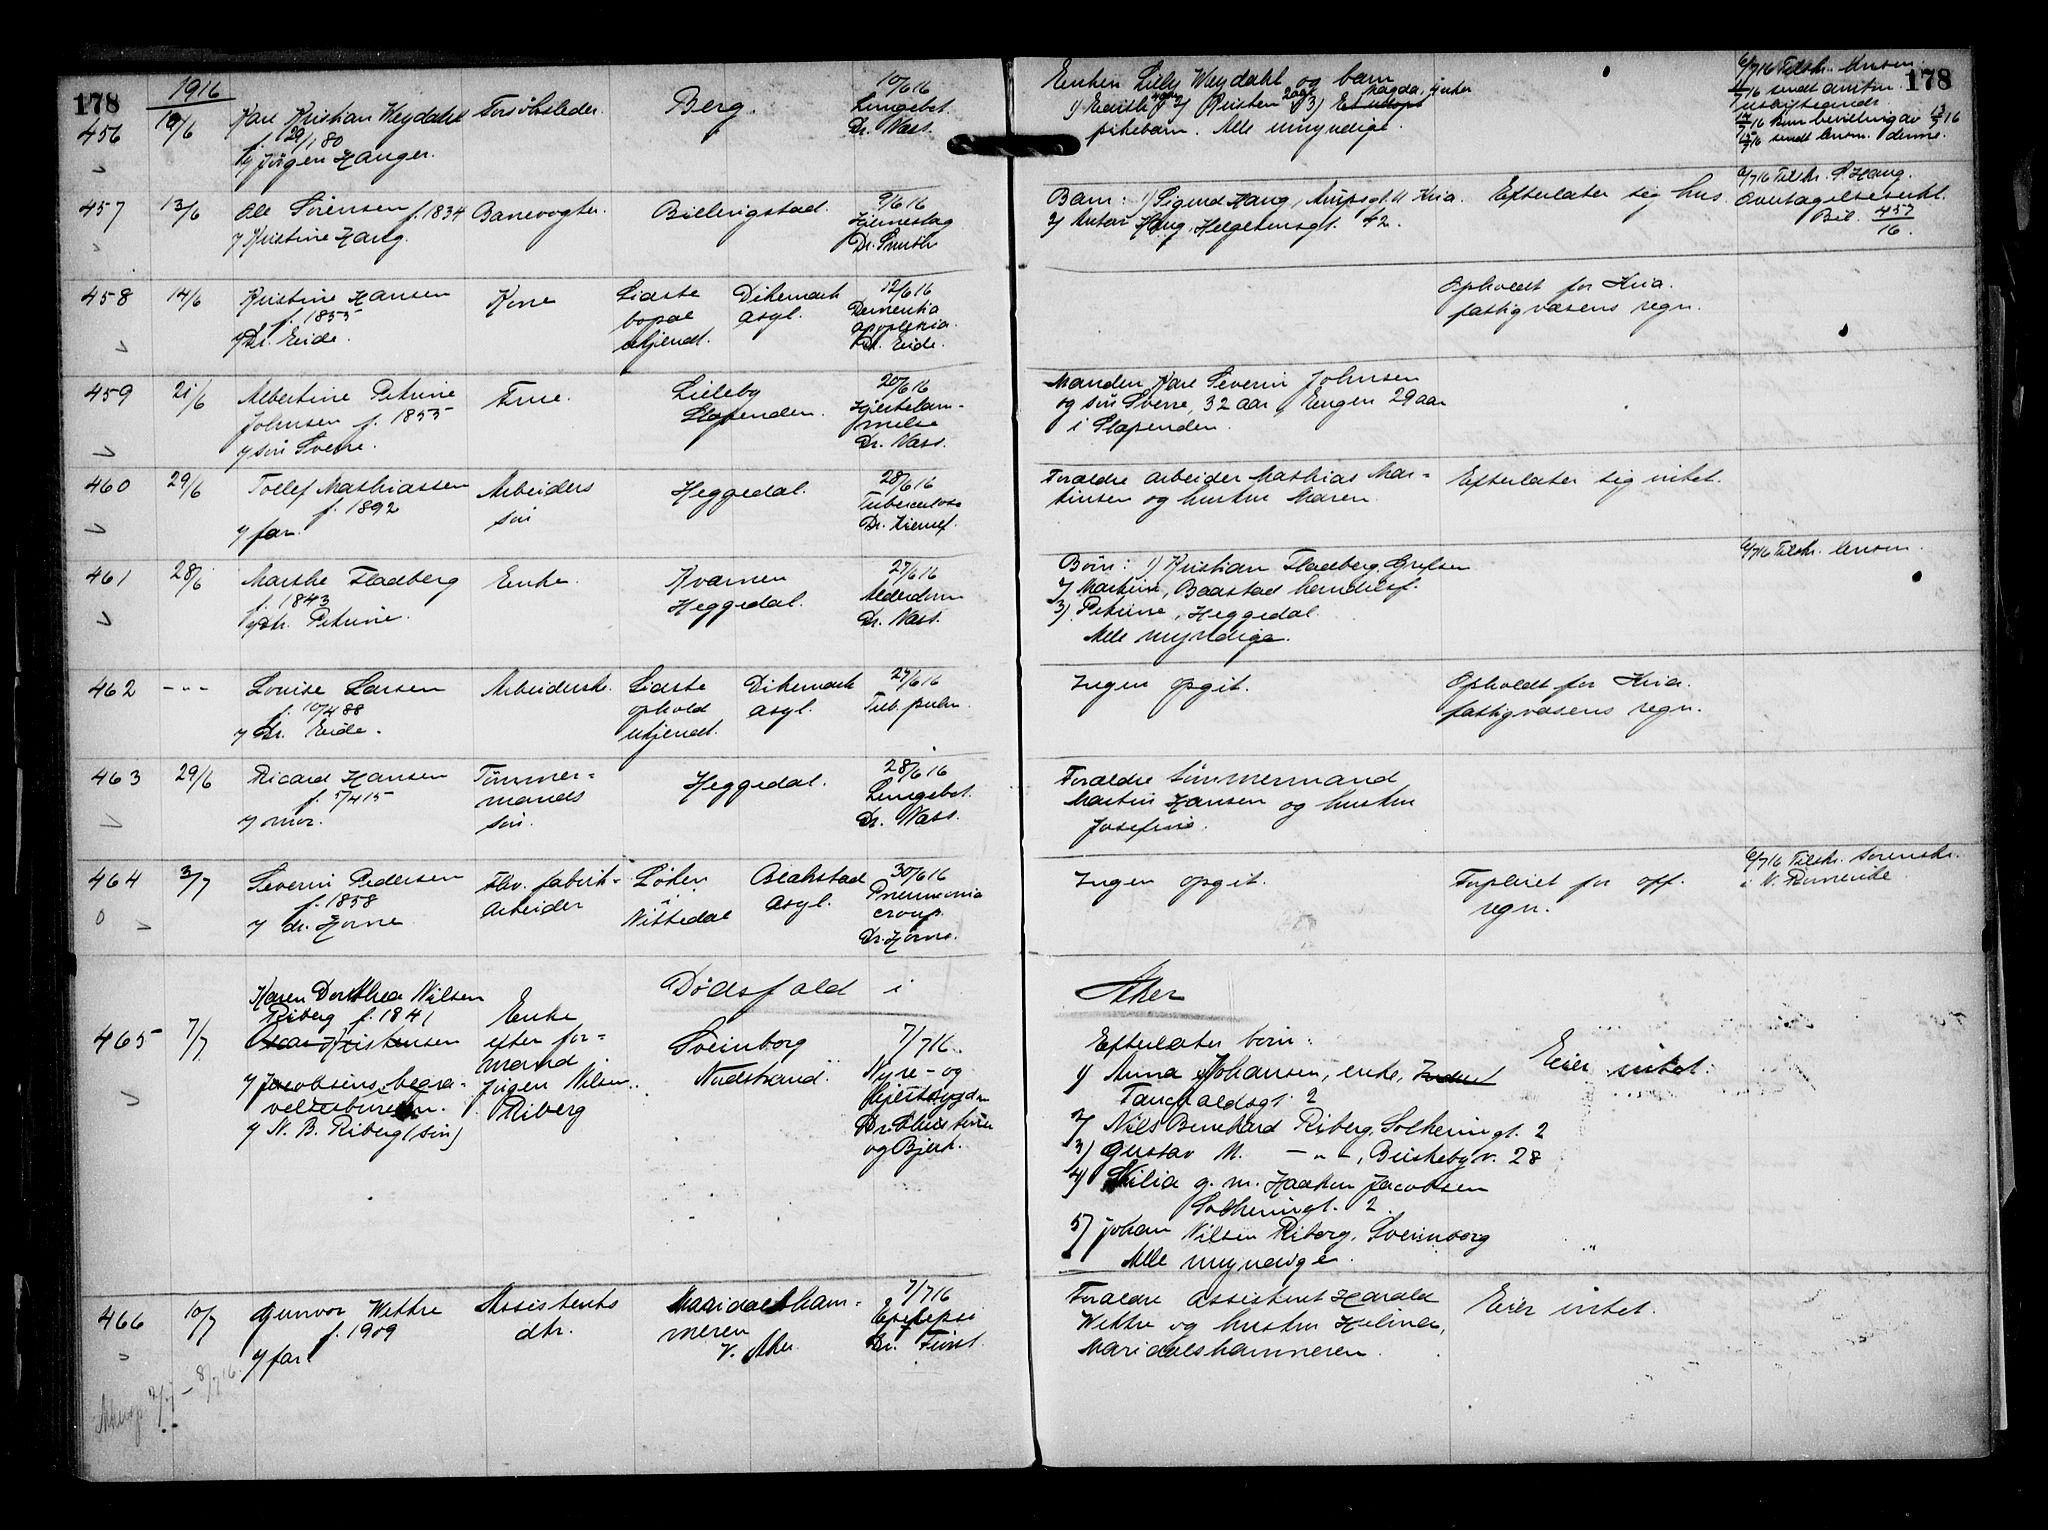 178
1916
456
19/6
Karl Kristian Weydahl
f. 29/1 80
v/ Jörgen Hanger.
Forsöksleder.
Berg.
10/6 16
Lungebet.
Dr. Wass.
Enken Lilly Weydahl og barn
1) Edith 4 aar 2) Kristen 2 aar 3) Et udöpt
Magda,
pikebarn. Alle umyndige.
178
6/7 16 Tilskr. enken
457
13/6
Ole Sörensen f. 1834
v/ Kristine Haug.
Banevogter.
Billingstad.
9/6 16
Hjerneslag
Dr. Smith
Barn: 1) Sigurd Haug, Kria.
2) Anton Haug, Helgesensgt. 42.
Efterlater sig hus
Tilskr. S. Haug.
Overtagelseserkl.
Bil. 457/16.
458
14/6
Kristine Hansen
f. 1855
v/ Dr. Eide.
Kone
Sidste
bopæl
ukjendt.
Dikemark
asyl.
12/6 16
Dementia
apoplexia.
Dr. Eide.
Opholdt for Kria.
fattigvæsens regn.
459
21/6
Albertine Petrine
Johnsen f. 1855
v/ sön Sverre.
Frue.
Lilleby
Slependen.
20/6 16
Hjertelam-
melse
Dr. Wass.
Manden Karl Severin Johnsen
og sön Sverre, 32 aar, Eugen 29 aar
i Slependen.
460
29/6
Tollef Mathiassen
f. 1892
v/ far.
Arbeiders
sön
Heggedal.
28/6 16
Tuberculose
Forældre arbeider Mathias Mar-
tinsen og hustru Maren.
Efterlater sig intet.
461
28/6
Marthe Fladberg
f. 1843
v/ dtr. Petrine.
Enke.
Kvarnen
Heggedal.
27/6 16
Alderdom
Dr. Wass.
Börn: 1) Kristian Fladberg, Grefsen
2) Martine, Baastad
3) Petrine, Heggedal.
Alle myndige.
6/7 16 Tilskr.
462
- " -
Louise Larsen
f. 10/4 88
v/ Dr. Eide.
Arbeiderske.
Sidste
ophold
ukjendt.
Dikemark
asyl.
27/6 16
Tub. pulm.
Ingen opgit.
Opholdt for Kria.
fattigvæsens regn.
463
29/6
Ricard Hansen
f. 5/4 15
v/ mor.
Tömmer-
mands
sön.
Heggedal.
28/6 16
Lungebet.
Dr. Wass.
Forældre tömmermand
Martin Hansen og hustru
Josefine.
464
0
3/7
Severin Pedersen
f. 1858
v/ dr. Horne
Fhv. fabrik-
arbeider
Löken
i
Nittedal
Blakstad
asyl.
30/6 16
Pneumonia
croup.
Dr. Horne.
Ingen opgit.
Forpleiet for off.
regn.
6/7 16 Tilskr. sorenskr.
i N. Romerike
Dödsfald i
Aker
465
7/7
Karen Dorthea Nilsen
Riberg f. 1841
Oscar Kristensen
v/ Jacobsens begra-
velsesbureau.
v/ N. B. Riberg (sön)
Enke
efter for-
mand
Jörgen Nilsen
Riberg
Sveinborg
Nodstrand.
7/7 16.
Nyre- og
Hjertesygdom
og Bjerk.
Efterlater börn:
1) Anna Johansen, enke,
Fauchaldsgt. 2
2) Nils Bernhard Riberg, Solheimgt. 2
3) Gustav M. - " - , Briskebyv. 28
4) Milia g. m. Haakon Jacobsen
Solheimgt. 2
5) Johan Nilsen Riberg, Sveinborg
Alle myndige.
Eier intet.
466
10/7
Gunvor Wettre
f. 1909
v/ far
Assistents
dtr.
Maridalsham-
meren
V. Aker
7/7 16
Epilepsi
Dr. Fürst.
Forældre assistent Harald
Wettre og hustru Helina,
Maridalshammeren.
Eier intet.
8/7 16.